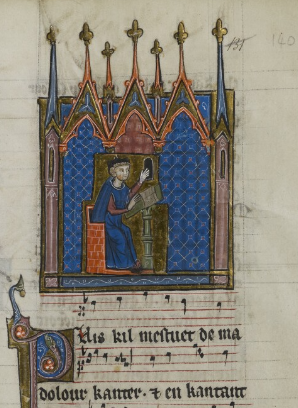 PUis kil mestuet de ma
dolour kanter. ⁊ en kantant